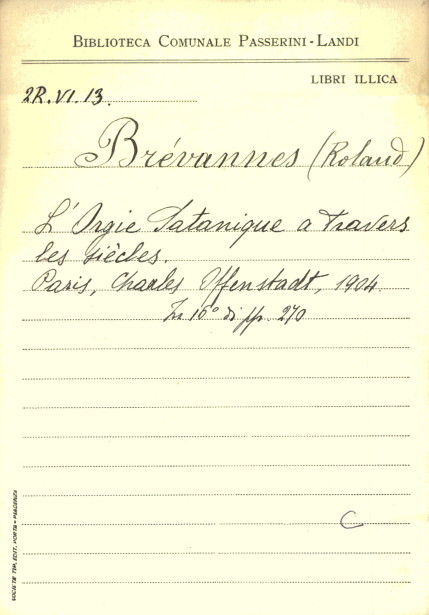 BIBLIOTECA COMUNALE PASSERINI-LANDI
LIBRI ILLICA
2R.VI.13.
Brévannes (Roland)
L'Orgie Satanique a travers
les siècles.
Paris, Charles Offenstadt, 1904.
In 16° di pp. 270
C
SOCIETÀ TIP. EDIT. PORTA - PIACENZA